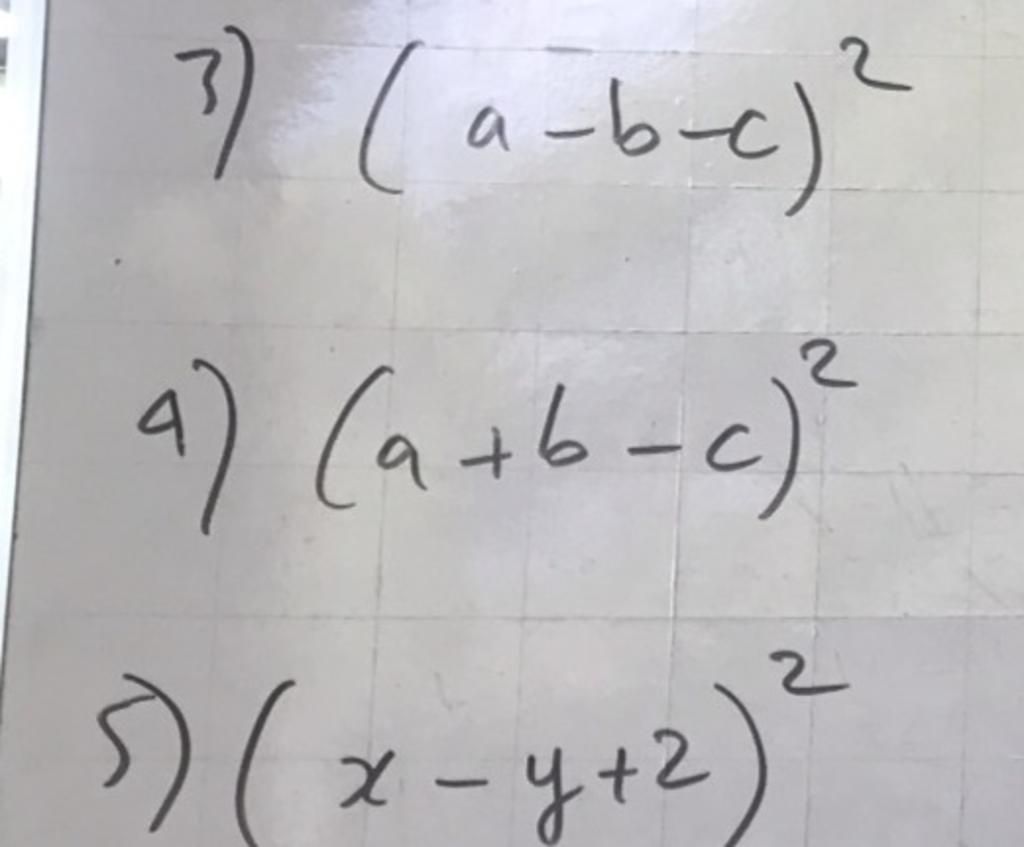 3) (a-b-c)²
4) (a+b-c)²
5) (x-y+2)²